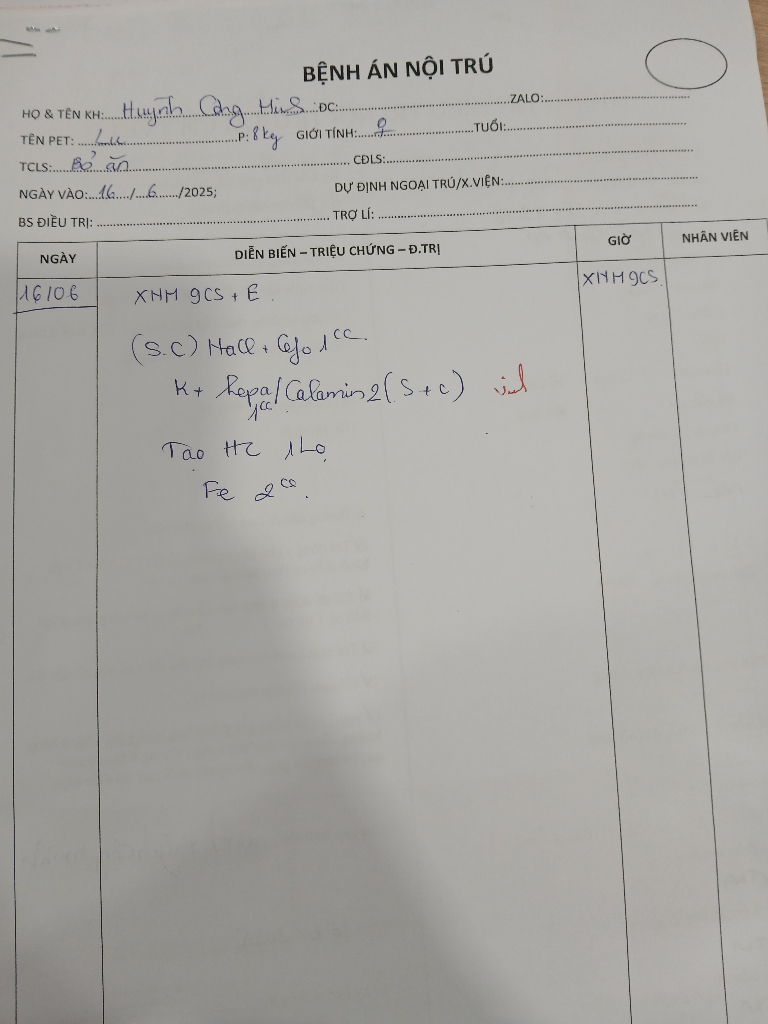 BỆNH ÁN NỘI TRÚ
HỌ & TÊN KH: Huỳnh Công Minh ĐC: ZALO:
TÊN PET: Lu P: 8kg GIỚI TÍNH: ♀ TUỔI:
TCLS: Bỏ ăn CĐLS:
NGÀY VÀO: 16 / 6 /2025; DỰ ĐỊNH NGOẠI TRÚ/X.VIỆN:
BS ĐIỀU TRỊ: TRỢ LÍ:
NGÀY DIỄN BIẾN – TRIỆU CHỨNG – Đ.TRỊ GIỜ NHÂN VIÊN
16/06 XNM 9CS + E. XNM 9CS.
(S.C) NaCl + 1cc.
K + hepa/Calamin 2(S+C)
1cc
Tạo HC 1 Lọ
Fe 2cc.